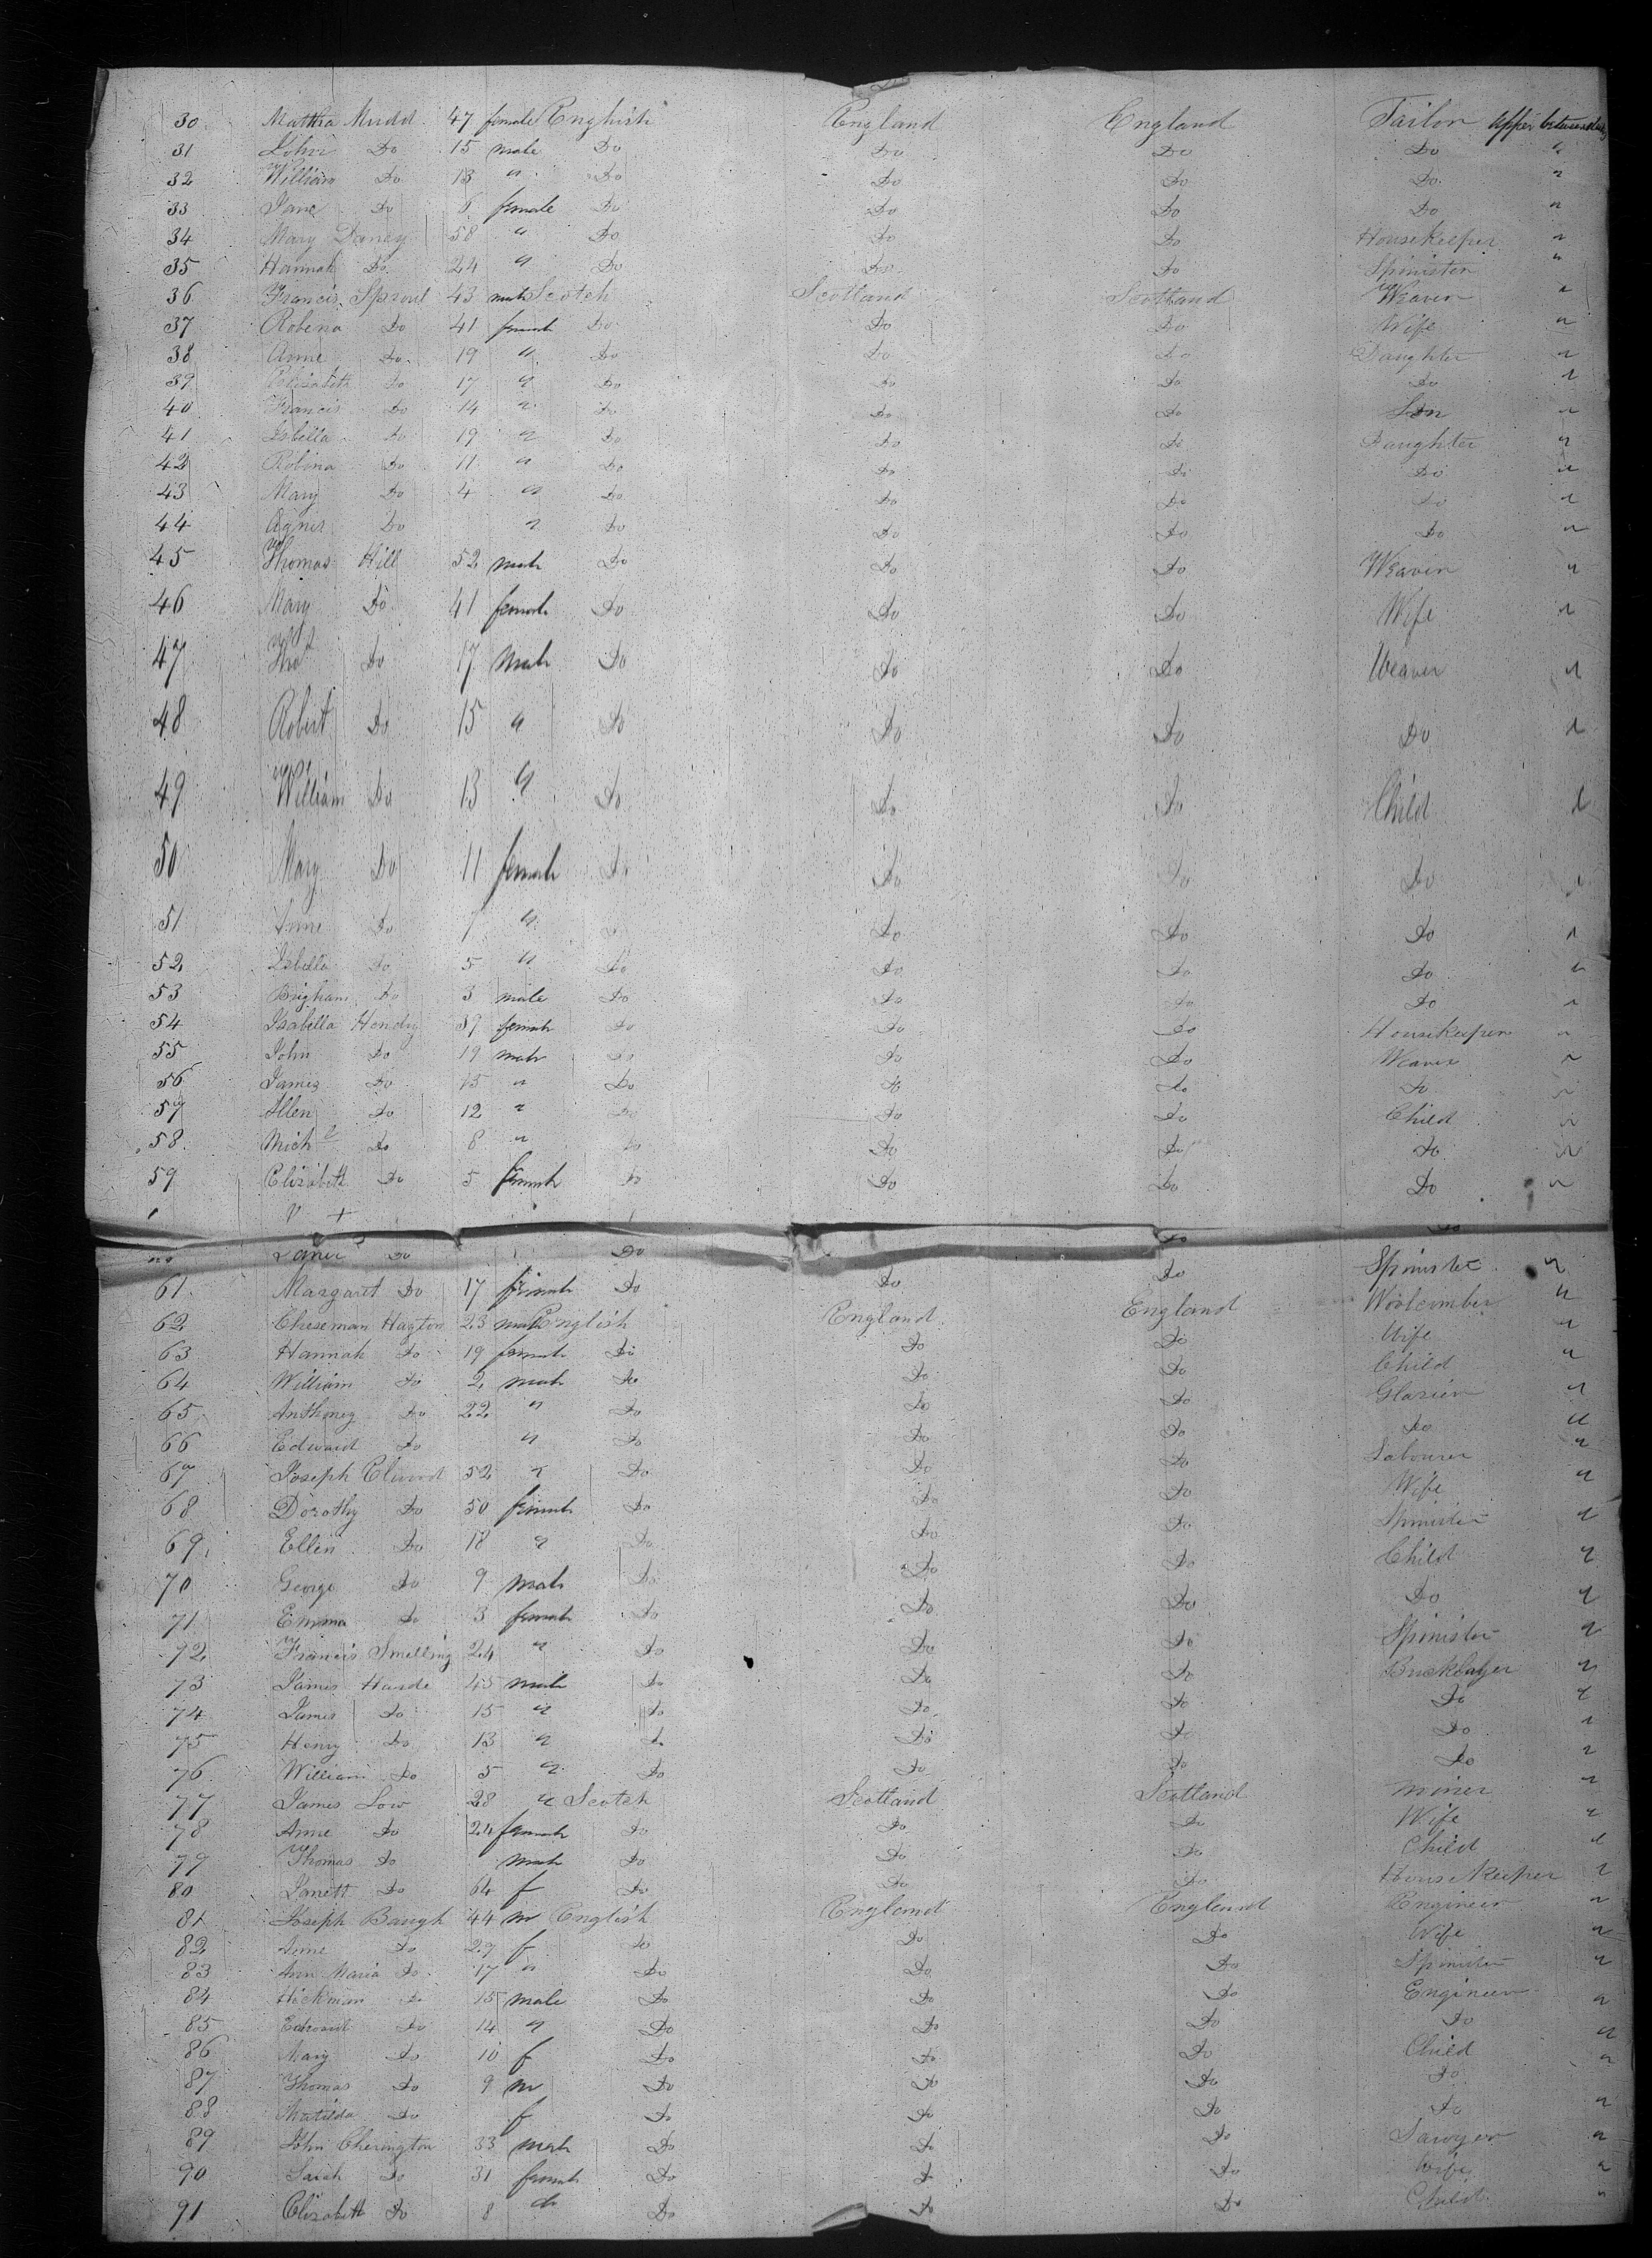 30 Martha Mudd 47 female English England England Tailor upper between decks
31 John Do 15 male Do Do Do Do "
32 William Do 13 " Do Do Do Do "
33 Jane Do 6 female Do Do Do Do "
34 Mary Dancy 58 " Do Do Do Housekeeper "
35 Hannah Do 24 " Do Do Do Spinister "
36 Francis Sproul 43 male Scotch Scotland Scotland Weaver "
37 Robena Do 41 female Do Do Do Wife "
38 Anne Do 19 " Do Do Do Daughter "
39 Elisabeth Do 17 " Do Do Do Do "
40 Francis Do 14 " Do Do Do Son "
41 Isbella Do 19 " Do Do Do Daughter "
42 Robina Do 11 " Do Do Do Do "
43 Mary Do 4 " Do Do Do Do "
44 Agnes Do " Do Do Do Do "
45 Thomas Hill 52 male Do Do Do Weaver "
46 Mary Do 41 female Do Do Do Wife "
47 Thos Do 17 male Do Do Do Weaver "
48 Robert Do 15 " Do Do Do Do "
49 William Do 13 " Do Do Do Child "
50 Mary Do 11 female Do Do Do Do "
51 Anne Do 7 " Do Do Do "
52 Isbella Do 5 " Do Do Do Do "
53 Brigham Do 3 male Do Do Do Do "
54 Isabella Hendry 39 female Do Do Do Housekeeper "
55 John Do 19 male Do Do Do Weaver "
56 James Do 15 " Do Do Do Do "
57 Allen Do 12 " Do Do Do Child "
58 Michl Do 8 " Do Do Do Do "
59 Elizabeth Do 5 female Do Do Do Do "
Do Do Do Do
61 Margaret Do 17 female Do Do Do Spinister "
62 Cheseman Hagton 23 male English England England Woolcomber "
63 Hannah Do 19 female Do Do Do Wife "
64 William Do 2 male Do Do Do Child "
65 Anthoney Do 22 " Do Do Do Glasier "
66 Edward Do " Do Do Do Do "
67 Joseph 52 " Do Do Do Labourer "
68 Dorothy Do 50 female Do Do Do Wife "
69 Ellen Do 18 " Do Do Do Spinister "
70 George Do 9 male Do Do Do Child "
71 Emma Do 3 female Do Do Do Do "
72 Francis Smelling 24 " Do Do Do Spinister "
73 James Harde 45 male Do Do Do Bricklayer "
74 James Do 15 " Do Do Do Do "
75 Henry Do 13 " Do Do Do Do "
76 William Do 5 " Do Do Do Do "
77 James Low 28 " Scotch Scotland Scotland miner "
78 Anne Do 24 female Do Do Do Wife "
79 Thomas Do male Do Do Do Child "
80 Janett Do 64 f Do Do Do House Keeper "
81 Joseph Baugh 44 m English England England Engineer "
82 Anne Do 27 f Do Do Do Wife "
83 Ann Maria Do 17 " Do Do Do Spinister "
84 Hickman Do 15 male Do Do Do Engineer "
85 Edward Do 14 " Do Do Do Do "
86 Mary Do 10 f Do Do Do Child "
87 Thomas Do 9 m Do Do Do Do "
88 Matilda Do f Do Do Do Do "
89 John Cherington 33 male Do Do Do Sawyer "
90 Sarah Do 31 female Do Do Do Wife "
91 Elizabeth Do 8 do Do Do Do Child "